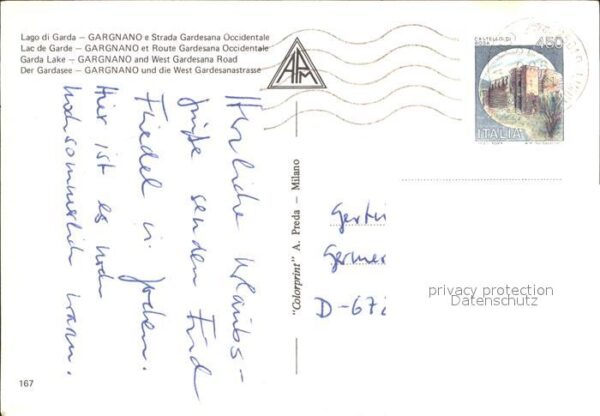 Lago di Garda – GARGNANO e Strada Gardesana Occidentale
Lac de Garde – GARGNANO et Route Gardesana Occidentale
Garda Lake – GARGNANO and West Gardesana Road
Der Gardasee – GARGNANO und die West Gardesanastrasse
APM
CASTELLO DI
BOSA
450
ITALIA
Herzliche Urlaubs-
grüße senden Euch
Friedel u. Jochen.
Hier ist es noch
hochsommerlich warm.
"Colorprint" A. Preda – Milano
Gertru
Germer
D-67
privacy protection
Datenschutz
167